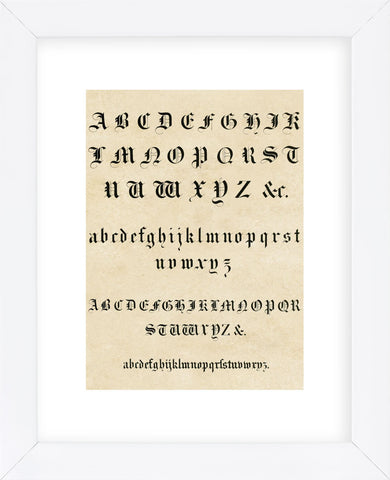 A B C D E F G H I K
L M N O P Q R S T
U V W X Y Z &c.
a b c d e f g h i j k l m n o p q r s t
u v w x y z
A B C D E F G H I J K L M N O P Q R
S T U V W X Y Z &.
abcdefghijklmnopqrſstuvwxyz.